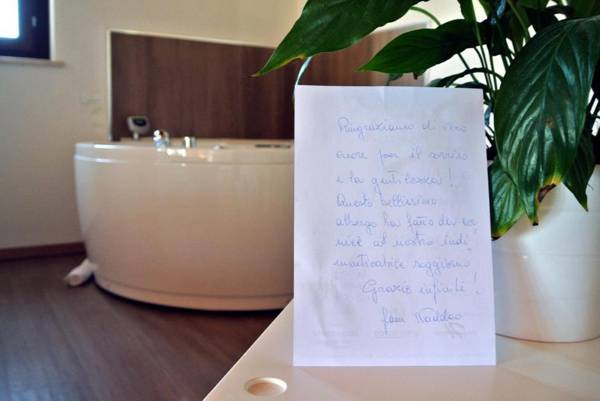 Ringraziamo di vero
cuore per il sorriso
e la gentilezza!
Questo bellissimo
albergo ha fatto da cor
nice al nostro indi
menticabile soggiorno
Grazie infinite!
fam